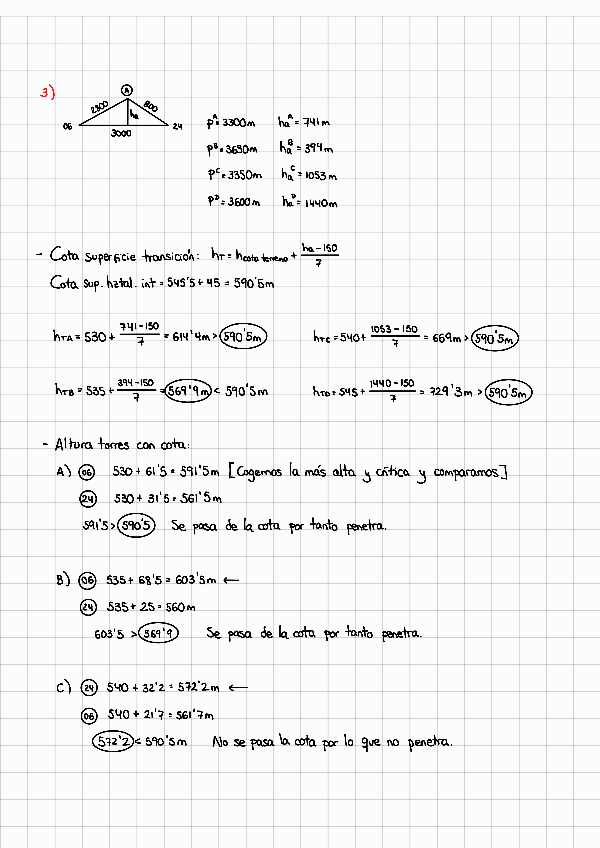 3)
A
2300
800
ha
06
24
3000
Pᴬ = 3300m   haᴬ = 741m
Pᴮ = 3650m   haᴮ = 394m
Pᶜ = 3350m   haᶜ = 1053m
Pᴰ = 3600m   haᴰ = 1440m
- Cota superficie transición: hT = hcota terreno + (ha - 150)/7
Cota sup. hztal. int = 545'5 + 45 = 590'5m
hTA = 530 + (741 - 150)/7 = 614'4m > 590'5m
hTC = 540 + (1053 - 150)/7 = 669m > 590'5m
hTB = 535 + (394 - 150)/7 = 569'9m < 590'5m
hTD = 545 + (1440 - 150)/7 = 729'3m > 590'5m
- Altura torres con cota:
A) 06 530 + 61'5 = 591'5m [Cogemos la más alta y crítica y comparamos]
24 530 + 31'5 = 561'5m
591'5 > 590'5 Se pasa de la cota por tanto penetra.
B) 06 535 + 68'5 = 603'5m ←
24 535 + 25 = 560m
603'5 > 569'9 Se pasa de la cota por tanto penetra.
C) 24 540 + 32'2 = 572'2m ←
06 540 + 21'7 = 561'7m
572'2 < 590'5m No se pasa la cota por lo que no penetra.